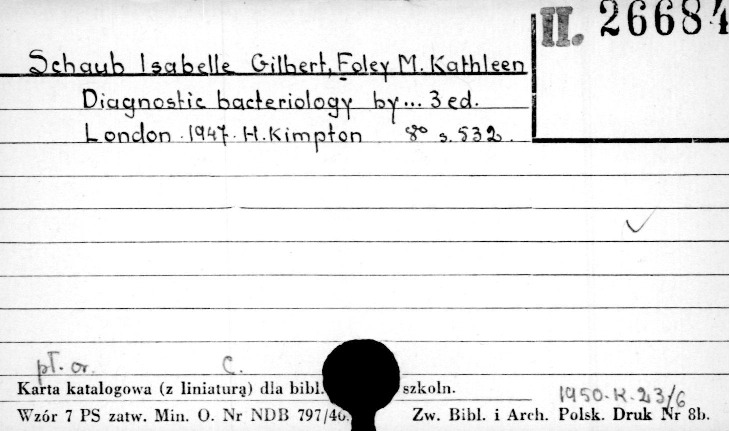 II. 26684
Schaub Isabelle Gilbert, Foley M. Kathleen
Diagnostic bacteriology by... 3 ed.
London . 1947 . H. Kimpton 8° s. 532.
pł. or. C.
Karta katalogowa (z liniaturą) dla bibl. szkoln. 1950.K.23/6
Wzór 7 PS zatw. Min. O. Nr NDB 797/46. Zw. Bibl. i Arch. Polsk. Druk Nr 8b.